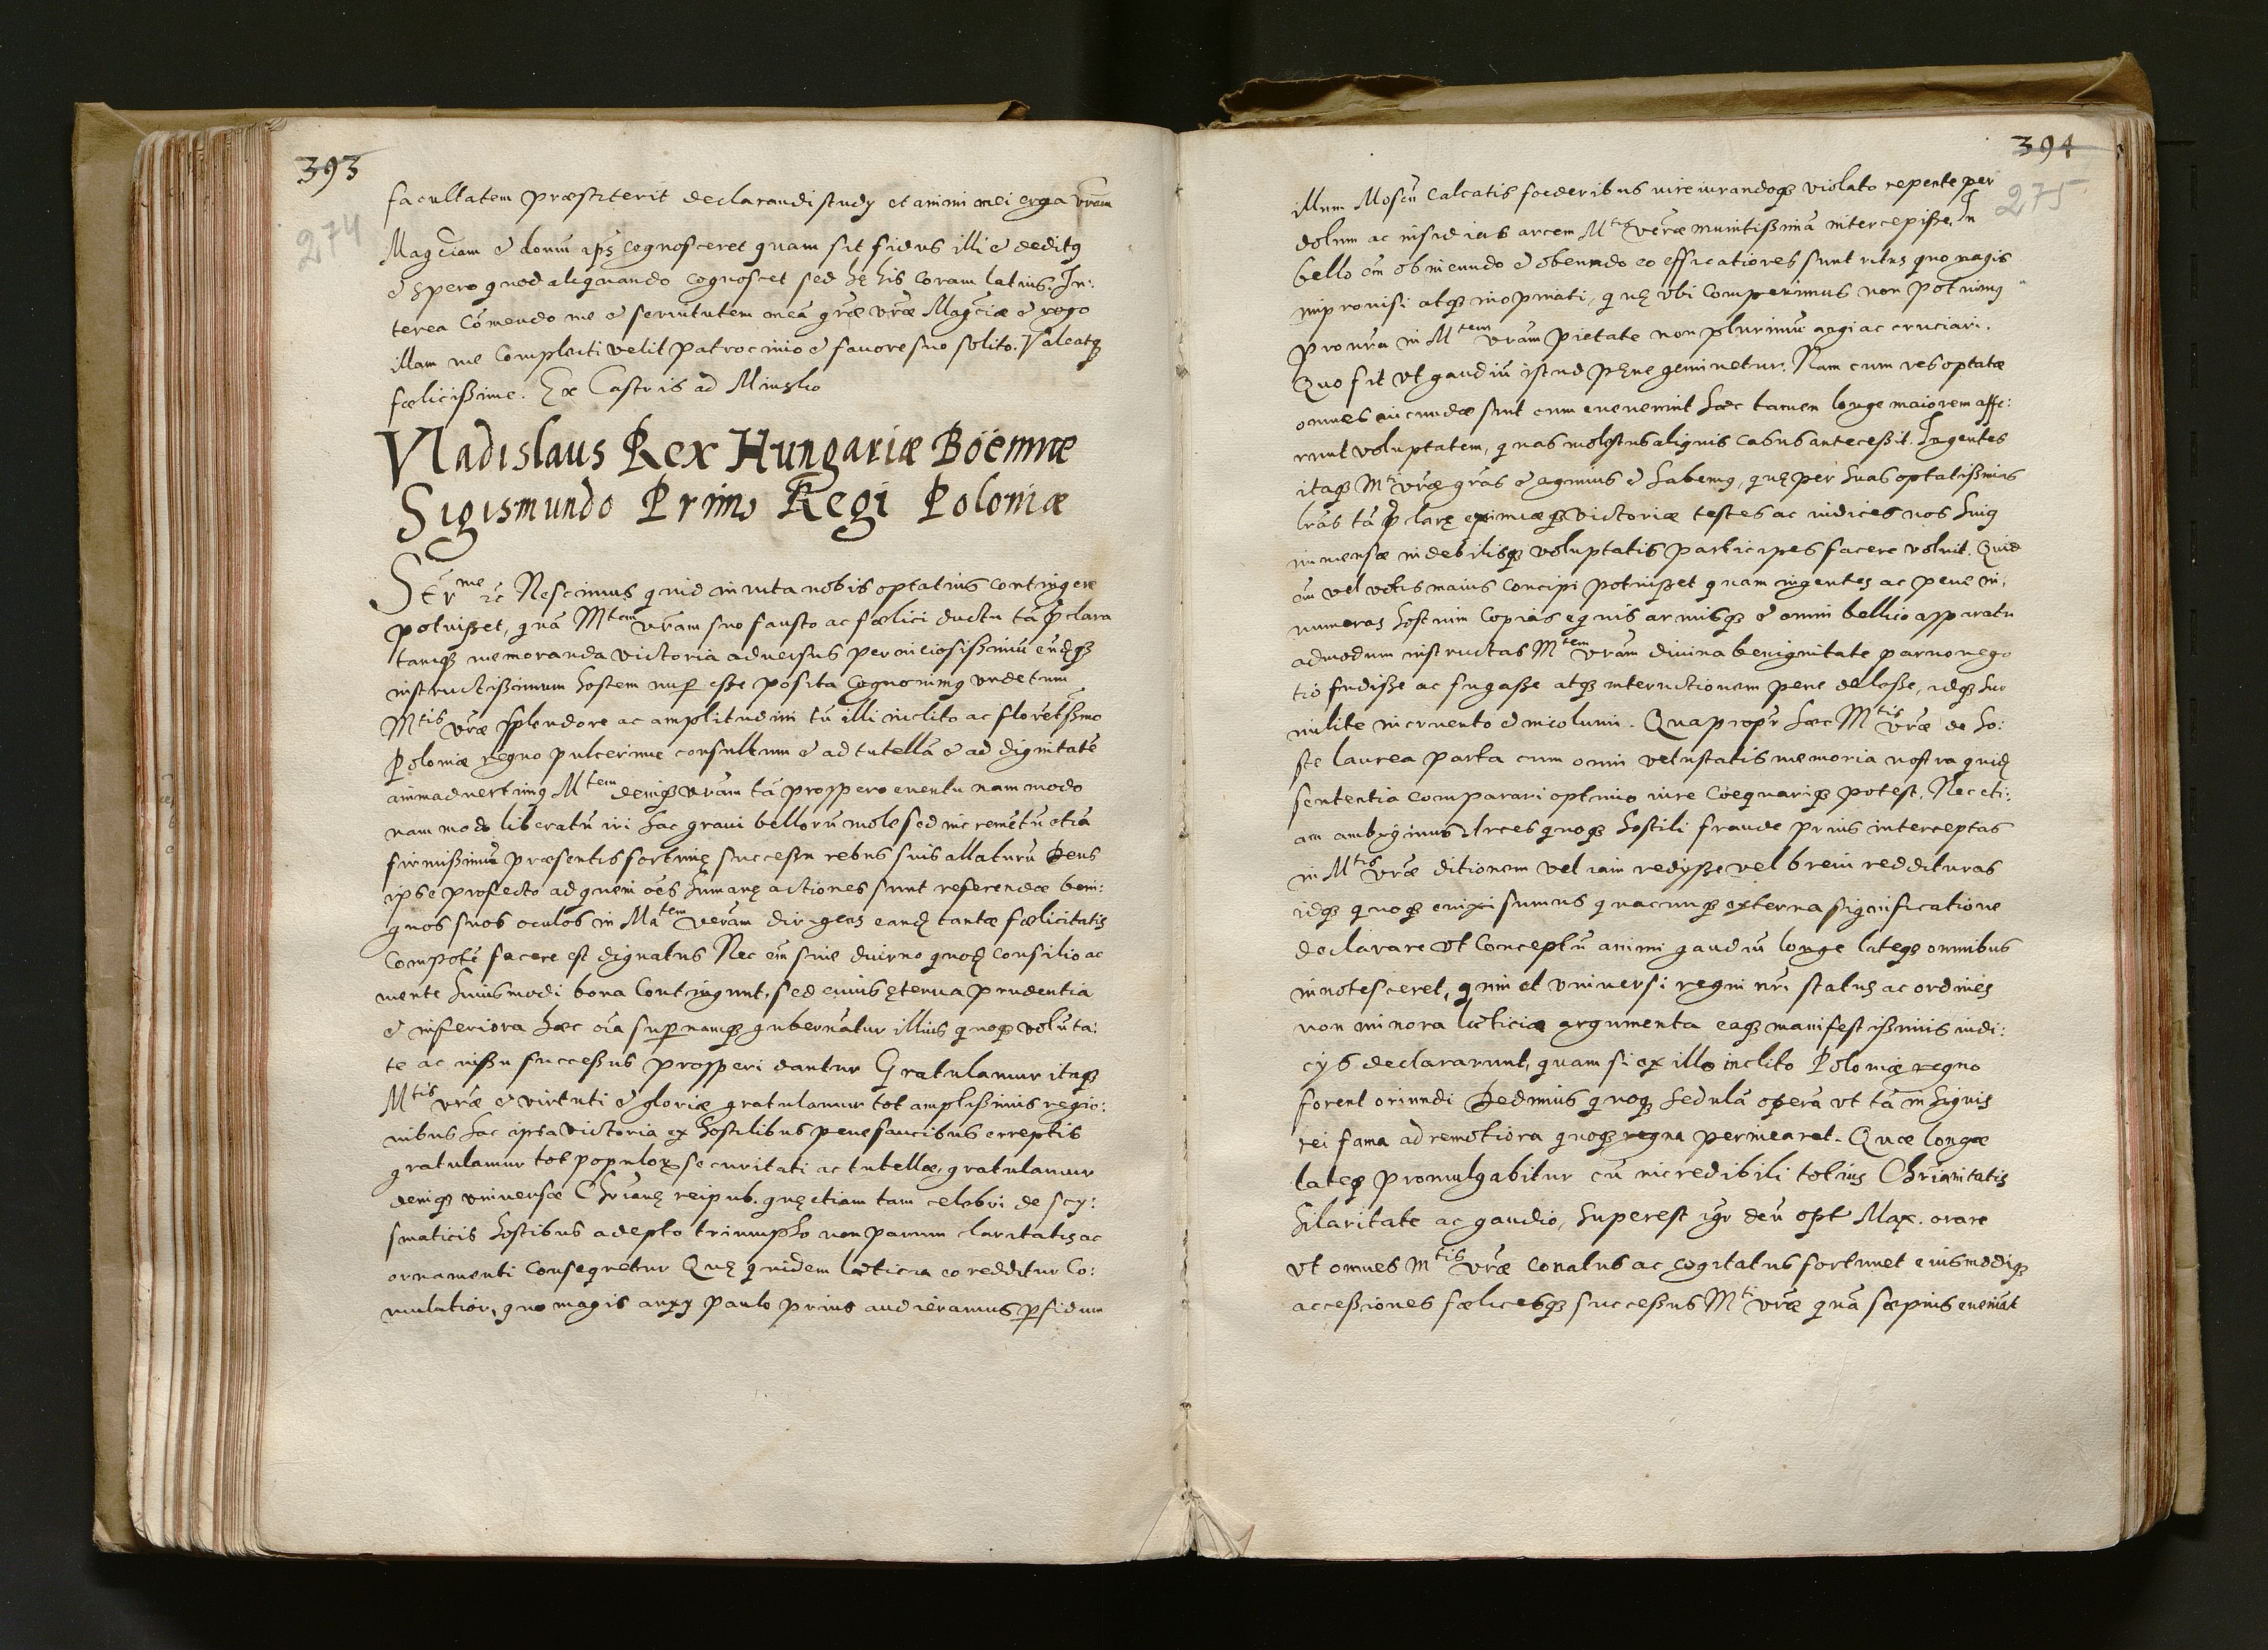 393
274
facultatem præstiterit declarandi study et animi mei erga vr̃am
Magc̃iam & donũ ips̃ cognosceret quam sit fidus illi & deditq
& spero quod aliquando cognoscet sed hę his coram latius. In:
terea Cõmendo me & seruitutem meã gr̃æ vr̃æ Magc̃iæ & rogo
illam me complecti velit patrocinio & fauore suo solito. Valeatqʒ
fœlicißime. Ex Castris ad Minsko
Vladislaus Rex Hungariæ Böemiæ
Sigismundo Primo Regi Poloniæ
Ser̃me ꝛc̃ Nescimus quid in vita nobis optatius contingere
potuisset, quã Mtem vr̃am suo fausto ac fœlici ductu tã p̃clara
tamqʒ memoranda victoria aduersus perniciosißimũ eũdqʒ
instructißimum hostem nup̃ eße posita cognouimq vnde tum
Mtis vr̃æ splendore ac amplitudini tũ illi inclito ac florẽtißmo
Poloniæ regno pulcerime consultum & ad tutellã & ad dignitatẽ
animaduertimq Mtem deniqʒ vr̃am tã prospero euentu nam modo
nam modo liberatũ iri hac graui bellorũ mole sed incremẽtũ etiã
firmißimũ præsentis fortunę succeßu rebus suis allaturũ Deus
ipse profecto ad quem oẽs humanę actiones sunt referendæ beni:
gnos suos oculos in Matem veram dirigens eand tantæ fœlicitatis
Compotẽ facere est dignatus Nec em̃ sine diuino quod consilio ac
mente huiusmodi bona contingunt, sed cuius ęterna prudentia
& inferiora hæc oĩa supernaqʒ gubernãtur illius quoqʒ volũta:
te ac nißu succeßus prosperi dantur Gratulamur itaqʒ
Mtis vr̃æ & virtuti & gloriæ gratulamur tot amplißimis regio:
nibus hac ipsa victoria ex hostilibus pene faucibus erreptis
gratulamur tot populoꝝ securitati ac tutellæ, gratulamur
deniqʒ vniuersæ Chr̃ianę reipub. quę etiam tam celebri de scy:
smaticis hostibus adepto triumpho non parum claritatis ac
ornamenti consequetur Quę quidem læticia eo redditur Cu:
mulatior, quo magis anxy paulo prius audieramus p̃fidum
394
275
illum Moscũ calcatis foederibus iureiurandoqʒ violato repente per
dolum ac insidias arcem Mtis veræ munitißimã intercepiße, In
bello em̃ obineundo & obeundo eo efficatiores sunt ictus quo magis
improuisi atqʒ inopinati, quę vbi comperimus non potuimq
pro nr̃a in Mtem vr̃am pietate non plurimũ angi ac cruciari.
Quo fit vt gaudiũ istud pęne geminetur. Nam cum res optatæ
omnes iucundæ sunt cum euenerint hæc tamen longe maiorem affe:
runt voluptatem, quas molestus aliquis casus anteceßit. Ingentes
itaqʒ Mti vr̃æ gr̃as & agimus & habemq, quę per suas optatißimas
lr̃as tã p̃clarę eximiæqʒ victoriæ testes ac iudices nos huiq
immensæ indebilisqʒ voluptatis participes facere voluit. Quid
em̃ vel votis maius concipi potuißet quam ingentes ac pene in:
numeras hostium copias equis armisqʒ & omni bellico apparatu
admodum instructas Mtem vr̃am diuina benignitate paruo nego
tio fudiße ac fugaße atqʒ internitionem pene deleße, idqʒ suo
milite incruento & incolumi. Quapropr̃ hæc Mtis vr̃æ de ho:
ste laurea parta cum omni vetustatis memoria nostra quidẽ
sententia comparari optimo iure Coequariqʒ potest. Nec eti:
am ambigimus Arces quoqʒ hostili fraude prius interceptas
in Mtis vr̃æ ditionem vel iam redyße vel breui reddituras
idqʒ quoqʒ enixi sumus quacumqʒ externa significatione
declarare vt conceptũ animi gaudiũ longe lateqʒ omnibus
innotesceret, quin et vniuersi regni nr̃i status ac ordines
non minora læticiæ argumenta eaqʒ manifestißimis indi:
cys declararunt, quam si ex illo inclito Poloniæ regno
forent oriundi Dedimus quoqʒ sedulã operã vt tã insignis
rei fama ad remotiora quoqʒ regna permearet. Quæ longæ
lateqʒ promulgabitur cũ incredibili totius Chr̃ianitatis
hilaritate ac gaudio, superest igr̃ deũ opt Max. orare
vt omnes Mtis vr̃æ conatus ac cogitatus fortunet eiusmodiqʒ
acceßiones fœlicesqʒ succeßus Mti vr̃æ quã sæpius eueniãt